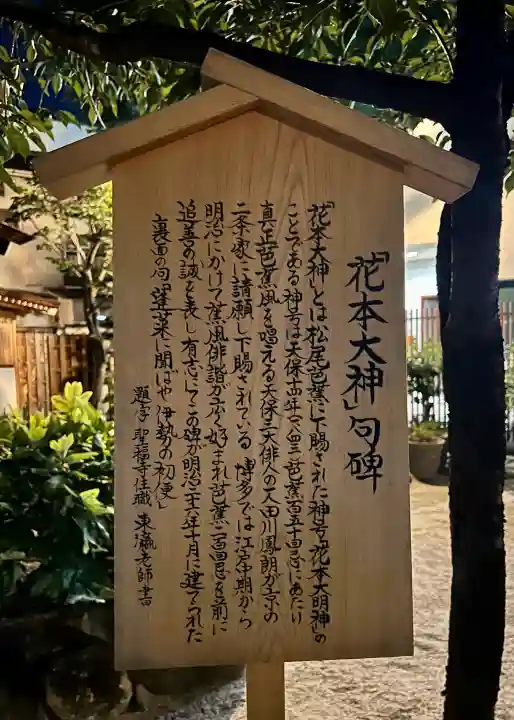 「花本大神」句碑
「花本大神」とは松尾芭蕉に下賜された神号「花本大明神」の
ことである 神号は天保十四年(一八四三)芭蕉百五十回忌にあたり
真正芭蕉風を唱える天保三大俳人の一人田川鳳朗が京の
二条家に請願し下賜されている 博多では江戸後期から
明治にかけて蕉風俳諧が広く好まれ芭蕉二百回忌を前に
追善の誠を表し有志にてこの碑が明治二十六年十月に建てられた
裏面の句「蓬莱に聞ばや伊勢の初便」
題字 聖福寺住職 東瀛老師書